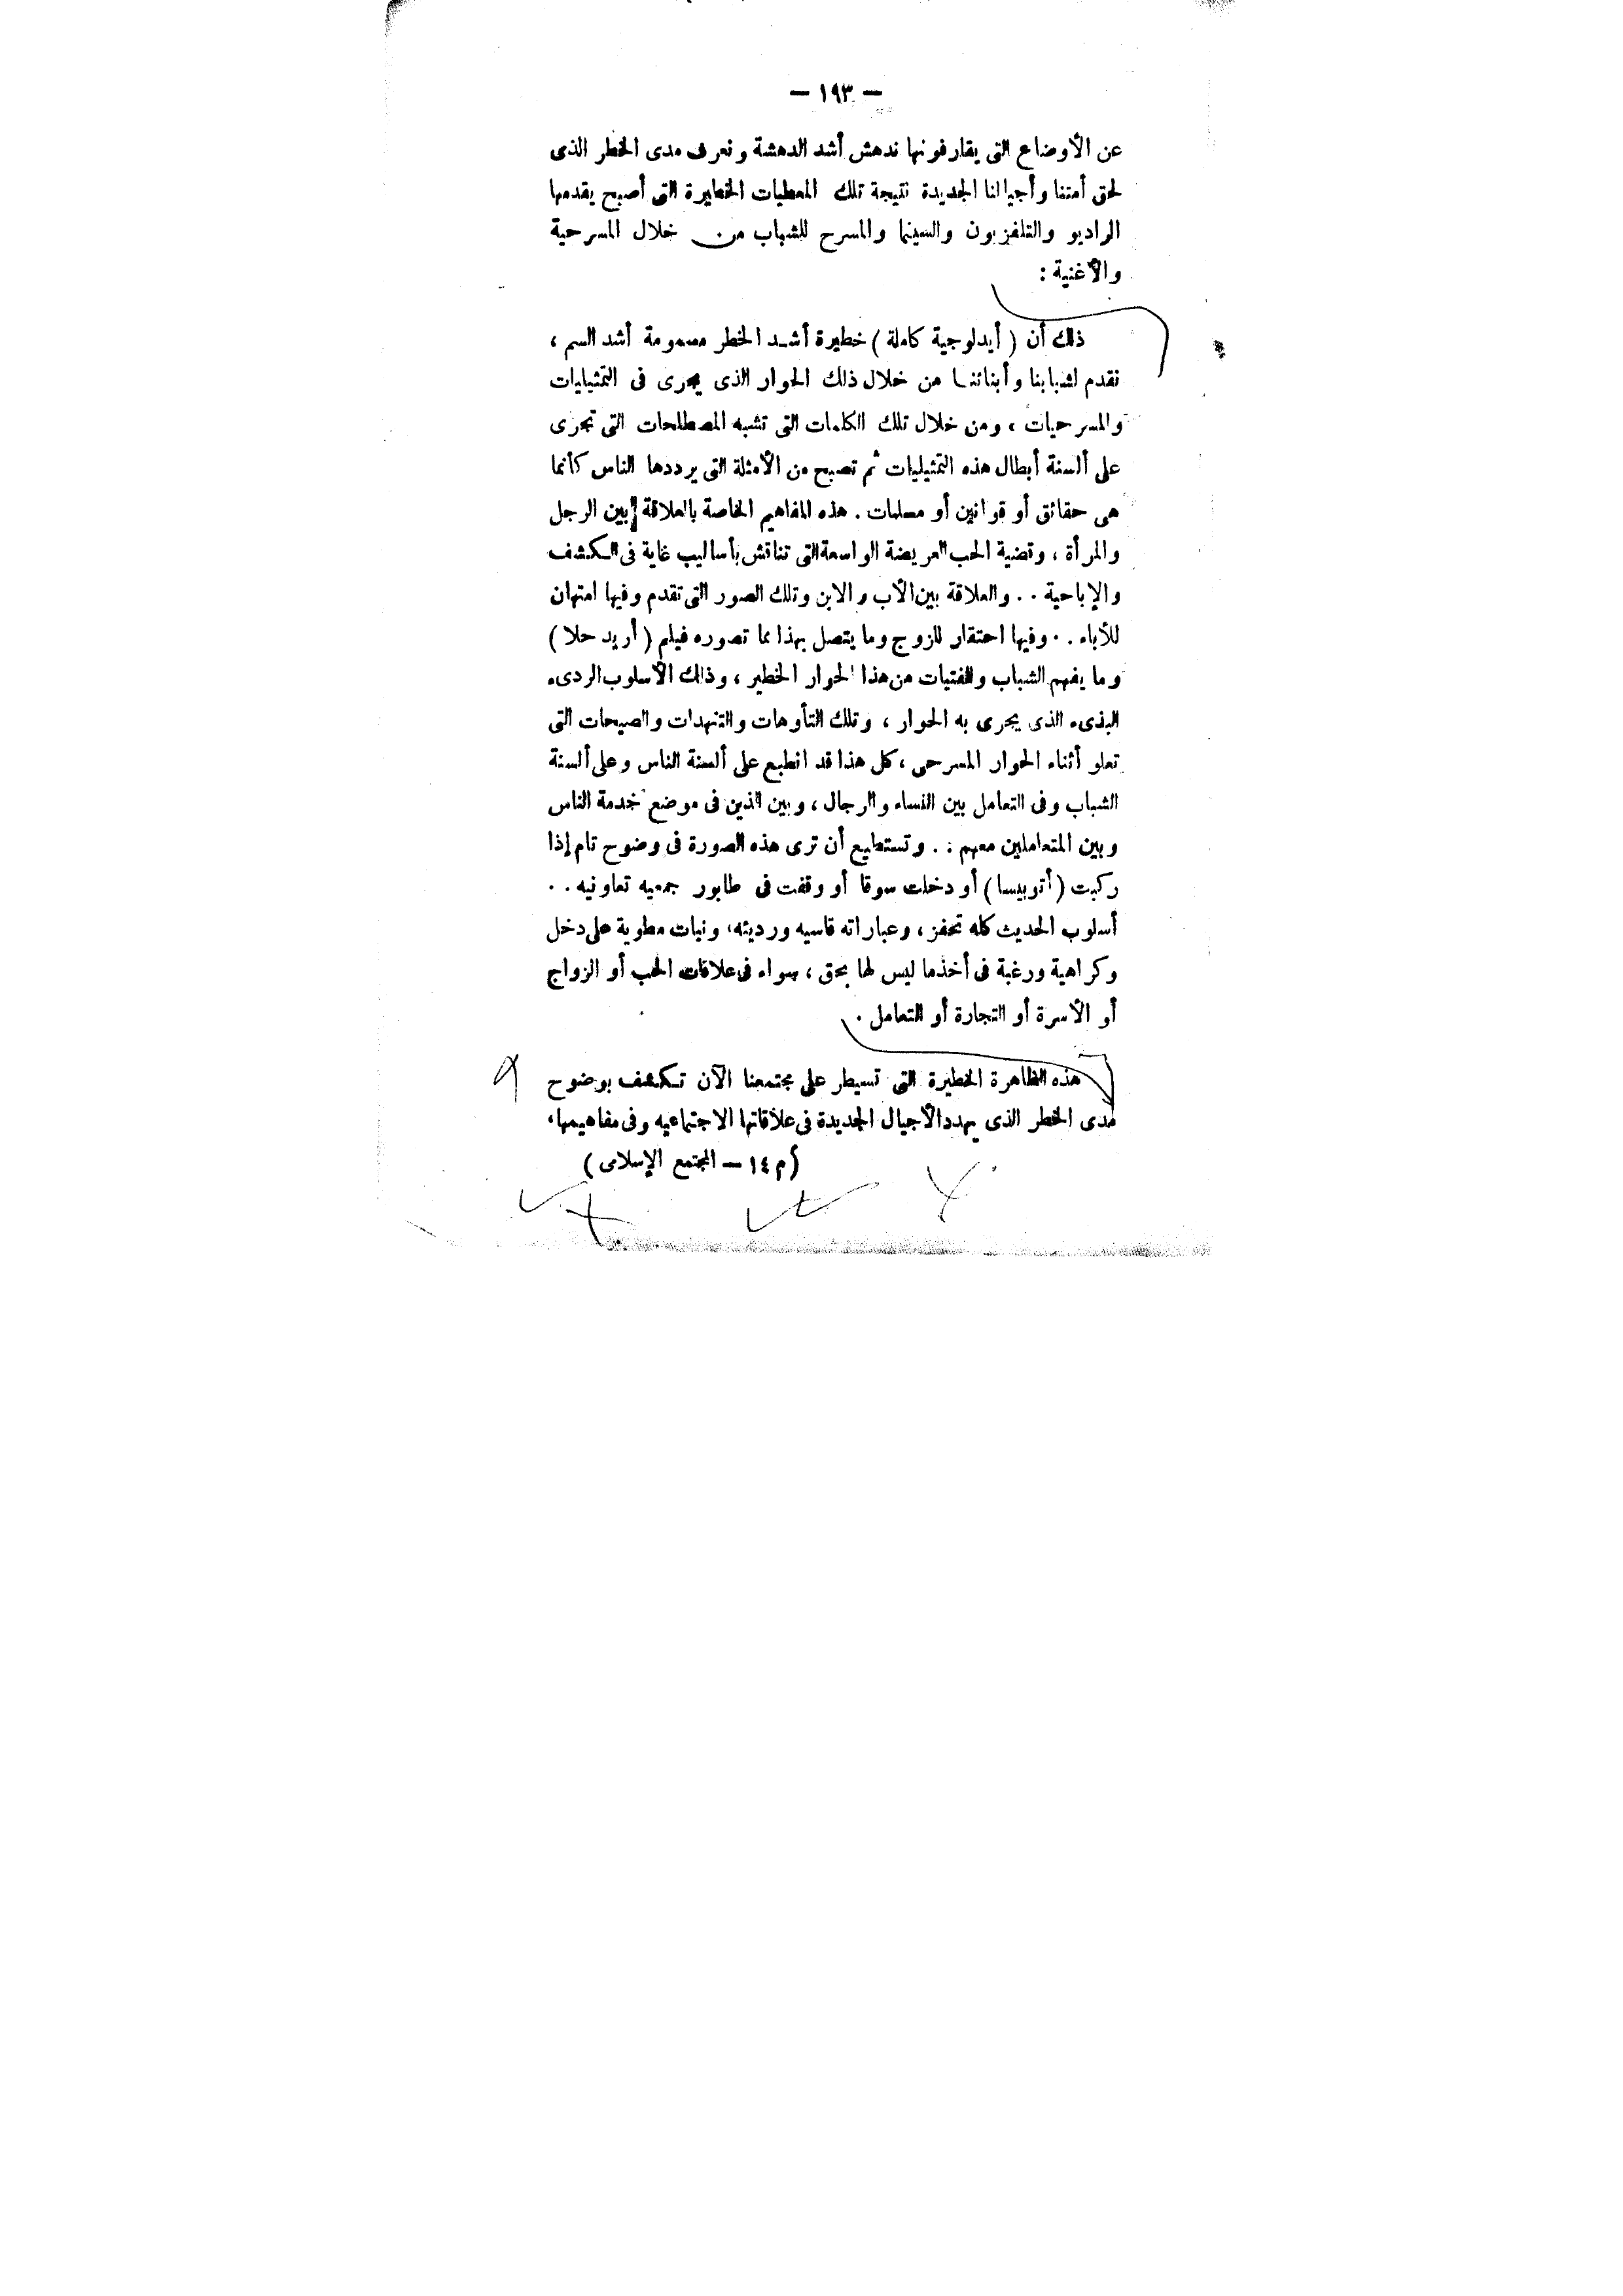 — ١٩٣ —
عن الأوضاع التى يقارفونها ندهش أشد الدهشة ونعرف مدى الخطر الذى
لحق أمتنا وأجيالنا الجديدة نتيجة تلك المعطيات الخطيرة التى أصبح يقدمها
الراديو والتلفزيون والسينما والمسرح للشباب من خلال المسرحية
والأغنية :
ذلك أن ( أيدلوجية كاملة ) خطيرة أشد الخطر مسمومة أشد السم ،
تقدم لشبابنا وأبنائنا من خلال ذلك الحوار الذى يجرى فى التمثيليات
والمسرحيات ، ومن خلال تلك الكلمات التى تشبه المصطلحات التى تجرى
على ألسنة أبطال هذه التمثيليات ثم تصبح من الأمثلة التى يرددها الناس كأنما
هى حقائق أو قوانين أو مسلمات . هذه المفاهيم الخاصة بالعلاقة بين الرجل
والمرأة ، وقضية الحب العريضة الواسعة التى تناقش بأساليب غاية فى الكشف
والإباحية . . والعلاقة بين الأب والابن وتلك الصور التى تقدم وفيها امتهان
للأباء . . وفيها احتقار للزوج وما يتصل بهذا مما تصوره فيلم ( أريد حلا )
وما يفهم الشباب والفتيات من هذا الحوار الخطير ، وذلك الأسلوب الردىء
البذىء الذى يجرى به الحوار ، وتلك التأوهات والتنهدات والصيحات التى
تعلو أثناء الحوار المسرحى ، كل هذا قد انطبع على ألسنة الناس وعلى ألسنة
الشباب وفى التعامل بين النساء والرجال ، وبين الذين فى موضع خدمة الناس
وبين المتعاملين معهم . . وتستطيع أن ترى هذه الصورة فى وضوح تام إذا
ركبت ( أتوبيسا ) أو دخلت سوقا أو وقفت فى طابور جمعيه تعاونيه . .
أسلوب الحديث كله تحفز ، وعباراته قاسيه ورديئه ، ونيات مطوية على دخل
وكراهية ورغبة فى أخذ ما ليس لها بحق ، سواء فى علاقات الحب أو الزواج
أو الأسرة أو التجارة أو التعامل .
هذه الظاهرة الخطيرة التى تسيطر على مجتمعنا الآن تكشف بوضوح
مدى الخطر الذى يهدد الأجيال الجديدة فى علاقاتها الاجتماعيه وفى مفاهيمها ،
( م ١٤ — المجتمع الإسلامى )